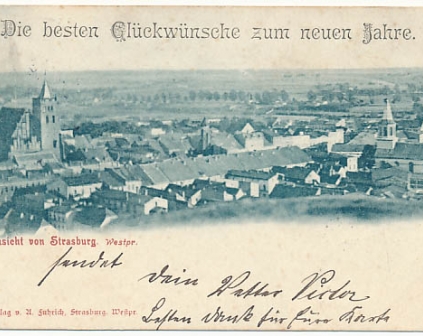 Die besten Glückwünsche zum neuen Jahre.
nsicht von Strasburg. Westpr.
sendet Dein Vetter Victor
Besten Dank für Eure Karte
lag v. A. Fuhrich, Strasburg. Westpr.